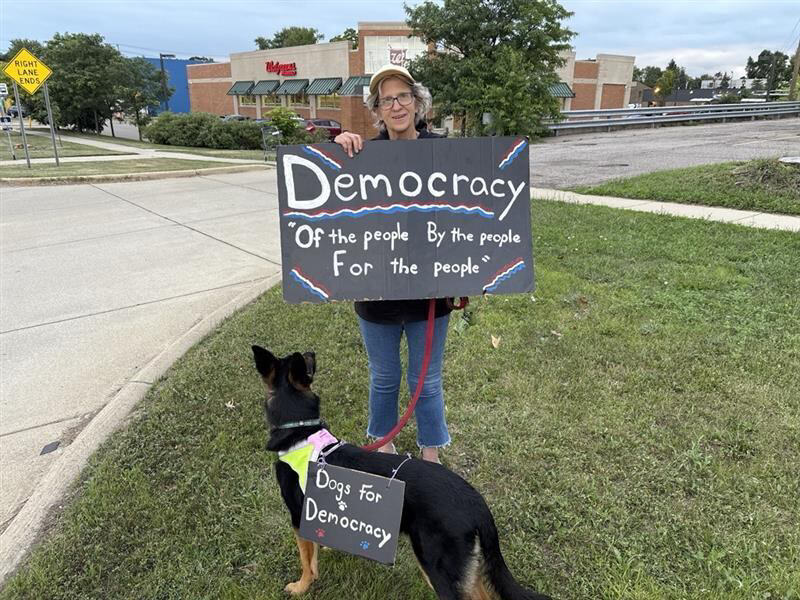 RIGHT
LANE
ENDS
Walgreens
Democracy
"Of the people By the people
For the people"
Dogs For
Democracy